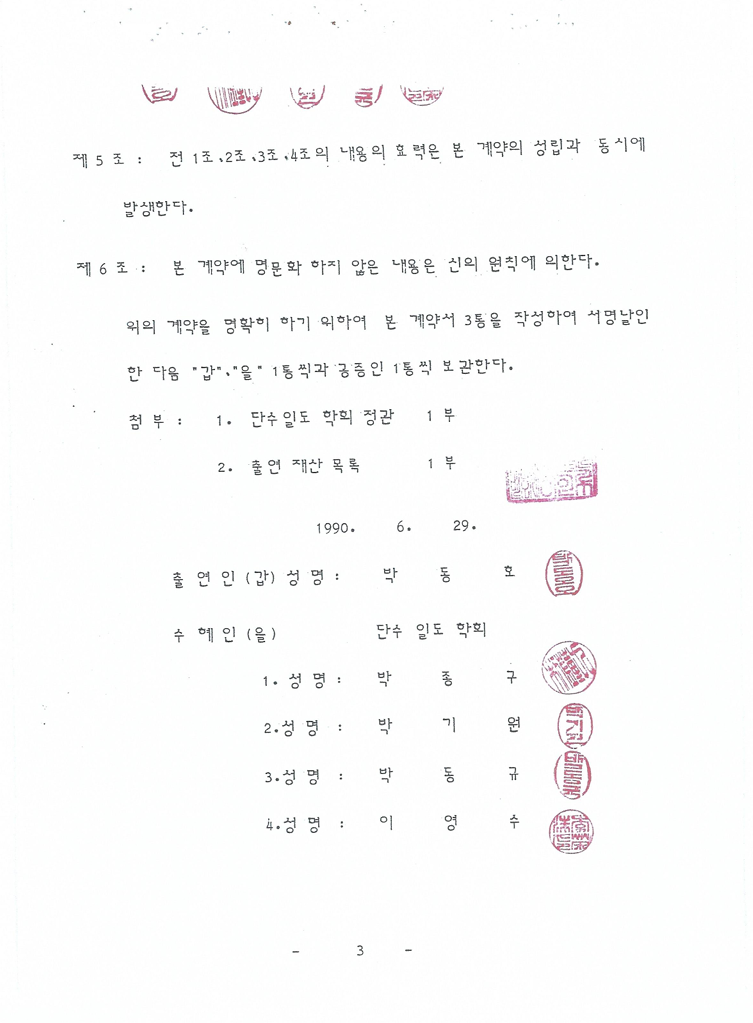 제 5 조 : 전 1조、2조、3조、4조의 내용의 효력은 본 계약의 성립과 동시에
발생한다.
제 6 조 : 본 계약에 명문화 하지 않은 내용은 신의 원칙에 의한다.
위의 계약을 명확히 하기 위하여 본 계약서 3통을 작성하여 서명날인
한 다음 "갑"、"을" 1통씩과 공증인 1통씩 보관한다.
첨 부 : 1. 단수일도 학회 정관 1 부
2. 출연 재산 목록 1 부
1990. 6. 29.
출 연 인 (갑) 성 명 : 박 동 호
수 혜 인 (을) 단수 일도 학회
1. 성 명 : 박 종 구
2.성 명 : 박 기 원
3.성 명 : 박 동 규
4.성 명 : 이 영 수
- 3 -